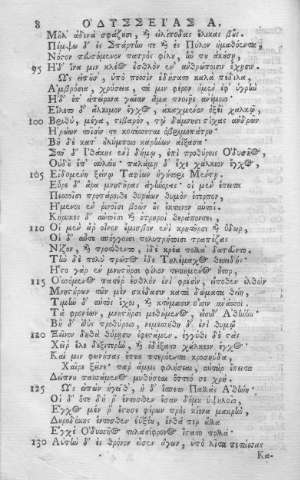 8 ΟΔΥΣΣΕΙΑΣ Α,
Μῆλ' ἁδινὰ σφάζουσι, καὶ εἰλίποδας ἕλικας βοῦς.
Πέμψω δ' ἐς Σπάρτην τε καὶ ἐς Πύλον ἠμαθόεντα,
Νόστον πευσόμενον πατρὸς φίλου, ἤν που ἀκούσῃ,
95 Ἠδ' ἵνα μιν κλέος ἐσθλὸν ἐν ἀνθρώποισιν ἔχῃσιν.
Ὣς εἰποῦσ', ὑπὸ ποσσὶν ἐδήσατο καλὰ πέδιλα,
Ἀμβρόσια, χρύσεια, τά μιν φέρον ἠμὲν ἐφ' ὑγρὴν
Ἠδ' ἐπ' ἀπείρονα γαῖαν ἅμα πνοιῇς ἀνέμοιο·
Εἵλετο δ' ἄλκιμον ἔγχος, ἀκαχμένον ὀξέϊ χαλκῷ,
100 Βριθὺ, μέγα, στιβαρὸν, τῷ δάμνησι στίχας ἀνδρῶν
Ἡρώων τοῖσίν τε κοτέσσεται ὀβριμοπάτρη·
Βῆ δὲ κατ' Οὐλύμποιο καρήνων ἀΐξασα·
Στῆ δ' Ἰθάκης ἐνὶ δήμῳ, ἐπὶ προθύροις Ὀδυσῆος,
Οὐδοῦ ἐπ' αὐλείου· παλάμῃ δ' ἔχε χάλκεον ἔγχος,
105 Εἰδομένη ξείνῳ Ταφίων ἡγήτορι Μέντῃ.
Εὗρε δ' ἄρα μνηστῆρας ἀγήνορας· οἱ μὲν ἔπειτα
Πεσσοῖσι προπάροιθε θυράων θυμὸν ἔτερπον,
Ἥμενοι ἐν ῥινοῖσι βοῶν οὓς ἔκτανον αὐτοί.
Κήρυκες δ' αὐτοῖσι καὶ ὀτρηροὶ θεράποντες,
110 Οἱ μὲν ἄρ' οἶνον ἔμισγον ἐνὶ κρητῆρσι καὶ ὕδωρ.
Οἱ δ' αὖτε σπόγγοισι πολυτρήτοισι τραπέζας
Νίζον, καὶ προτίθεντο, ἰδὲ κρέα πολλὰ δατεῦντο.
Τὴν δὲ πολὺ πρῶτος ἴδε Τηλέμαχος θεοειδής·
Ἧστο γὰρ ἐν μνηστῆρσι φίλον τετιημένος ἦτορ,
115 Ὀσσόμενος πατέρ' ἐσθλὸν ἐνὶ φρεσὶν, εἴποθεν ἐλθὼν
Μνηστήρων τῶν μὲν σκέδασιν κατὰ δώματα θείη,
Τιμὴν δ' αὐτὸς ἔχοι, καὶ κτήμασιν οἷσιν ἀνάσσοι.
Τὰ φρονέων, μνηστῆρσι μεθήμενος, εἴσιδ' Ἀθήνην·
Βῆ δ' ἰθὺς προθύροιο, νεμεσσήθη δ' ἐνὶ θυμῷ
120 Ξεῖνον δηθὰ θύρῃσιν ἐφεστάμεν. ἐγγύθι δὲ στὰς
Χεῖρ' ἕλε δεξιτερὴν, καὶ ἐδέξατο χάλκεον ἔγχος,
Καί μιν φωνήσας ἔπεα πτερόεντα προσηύδα,
Χαῖρε ξεῖνε παρ' ἄμμι φιλήσεαι, αὐτὰρ ἔπειτα
Δείπνου πασσάμενος μυθήσεαι ὅττεό σε χρή.
125 Ὣς εἰπὼν ἡγεῖθ', ἡ δ' ἕσπετο Παλλὰς Ἀθήνη·
Οἱ δ' ὅτε δή ῥ' ἔντοσθεν ἔσαν δόμου ὑψηλοῖο,
Ἔγχος μέν ῥ' ἔστησε φέρων πρὸς κίονα μακρὴν,
Δουροδόκης ἔντοσθεν ἐϋξόου, ἔνθά περ ἄλλα
Ἔγχε' Ὀδυσσῆος ταλασίφρονος ἵστατο πολλά·
130 Αὐτὴν δ' ἐς θρόνον εἷσεν ἄγων, ὑπὸ λῖτα πετάσσας
Κα-